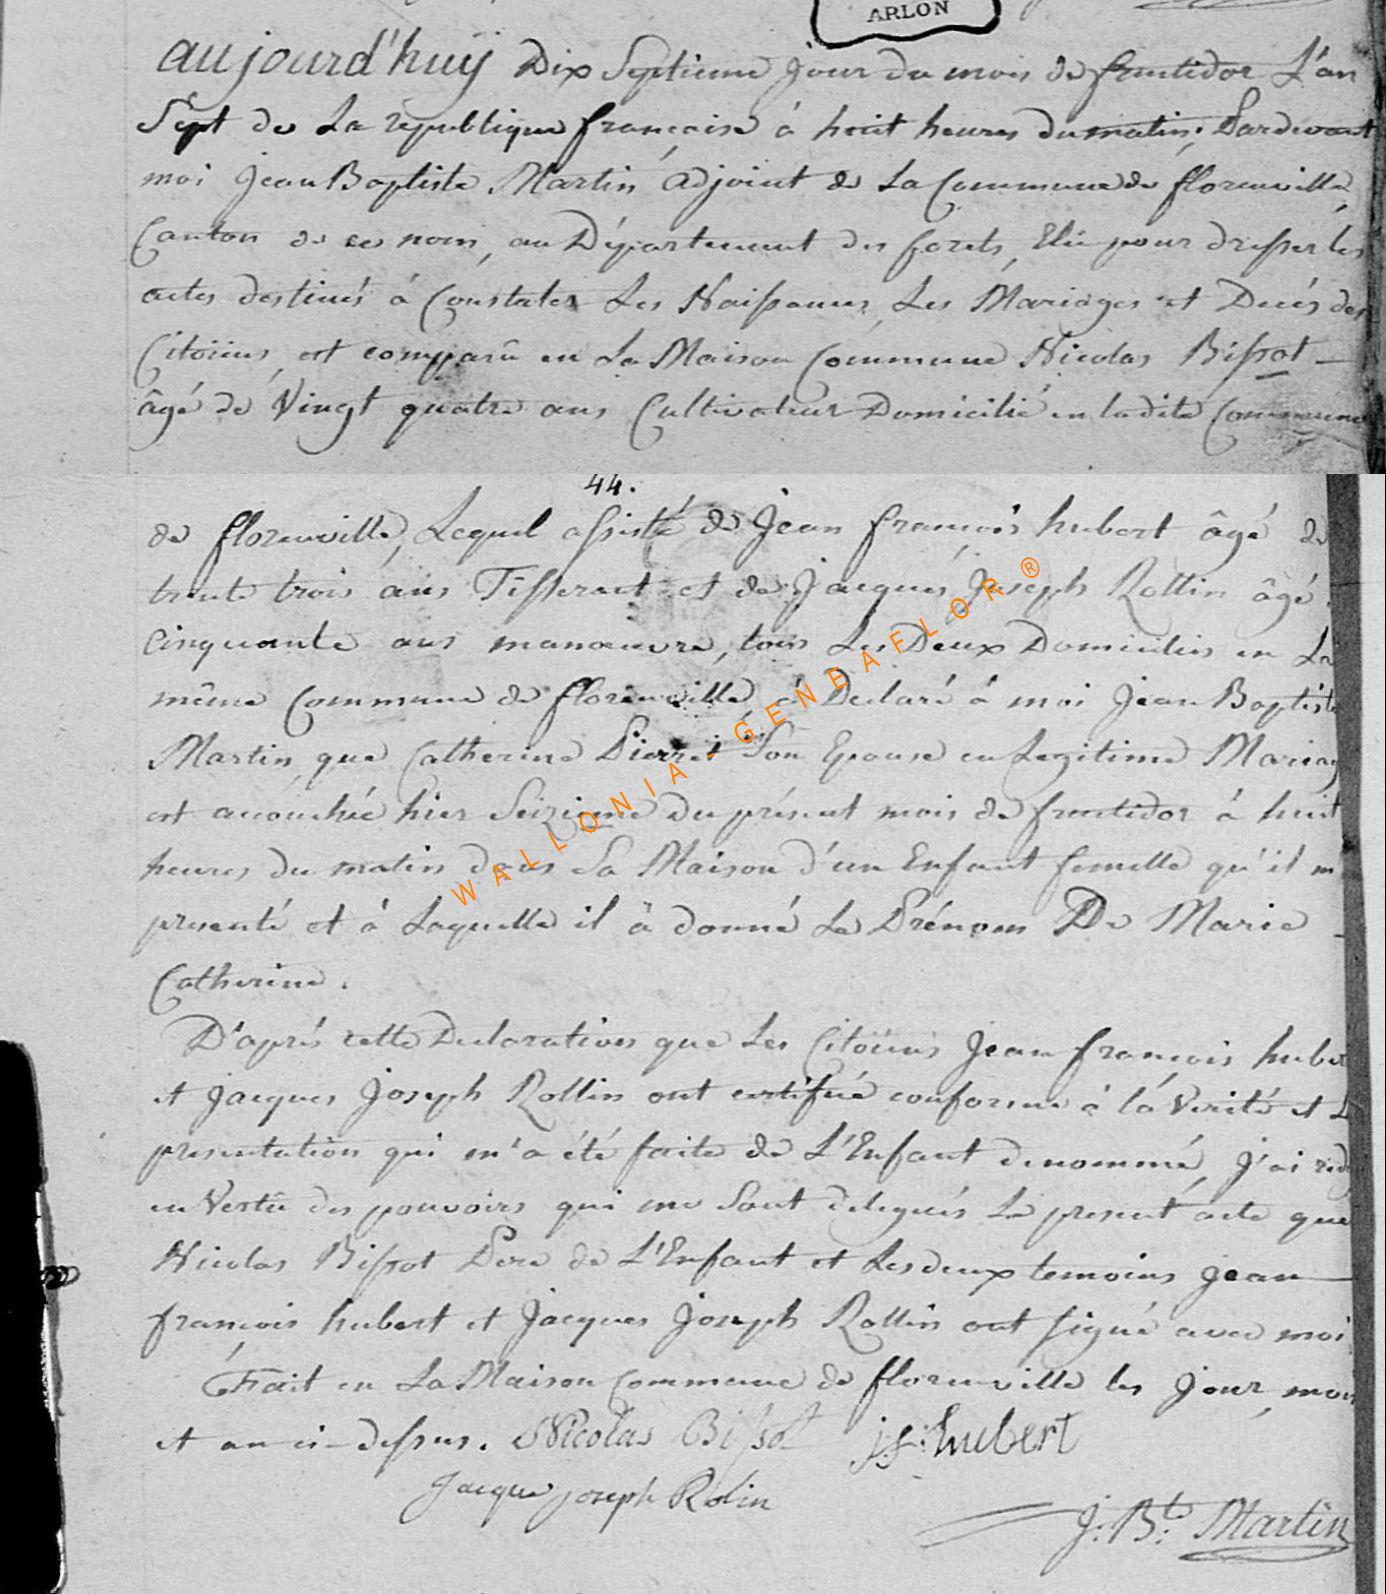 ARLON
aujourd'huÿ Dix Septieme jour du mois de fructidor L'an
Sept de La république française à huit heures du matin, Pardevant
moi Jean Baptiste Martin adjoint de La Commune de florenville,
Canton de ce nom, au Département des forets, Elu pour dresser les
actes destinés à Constater Les Naissances, Les Mariages et Decés des
Citoïens, est comparû en La Maison Commune Nicolas Bissot
âgé de Vingt quatre ans Cultivateur Domicilié en ladite Commune
44.
de florenville, Lequel assisté de Jean françois hubert âgé de
trente trois ans Tisserant et de Jacques Joseph Rollin âgé
Cinquante ans manœuvre, tous Les Deux Domiciliés en La
même Commune de florenville, à Declaré à moi Jean Baptiste
Martin, que Catherine Pierret Son Epouse en Legitime Mariag
est accouchée hier Seizieme du présent mois de fructidor à huit
heures du matin dans Sa Maison d'un Enfant femelle qu'il m
presenté et à Laquelle il à donné Le Prénom De Marie
Catherine.
D'après cette Declaration que Les Citoïens Jean françois huber
et Jacques Joseph Rollin ont certifié conforme à la Verité et L
presentation qui m'a été faite de L'Enfant denommé, j'ai redi
en Vertû des pouvoirs qui me Sont delegués Le present acte que
Nicolas Bissot Pere de L'Enfant et Les deux temoins Jean
françois hubert et Jacques Joseph Rollin ont signé avec moi
Fait en La Maison Commune de florenville les Jour, mois
et an ci-dessus. Nicolas Bissot j:f: hubert
Jacque joseph Rolin
J: Bte: Martin
WALLONIA - GENEAFLOR ®